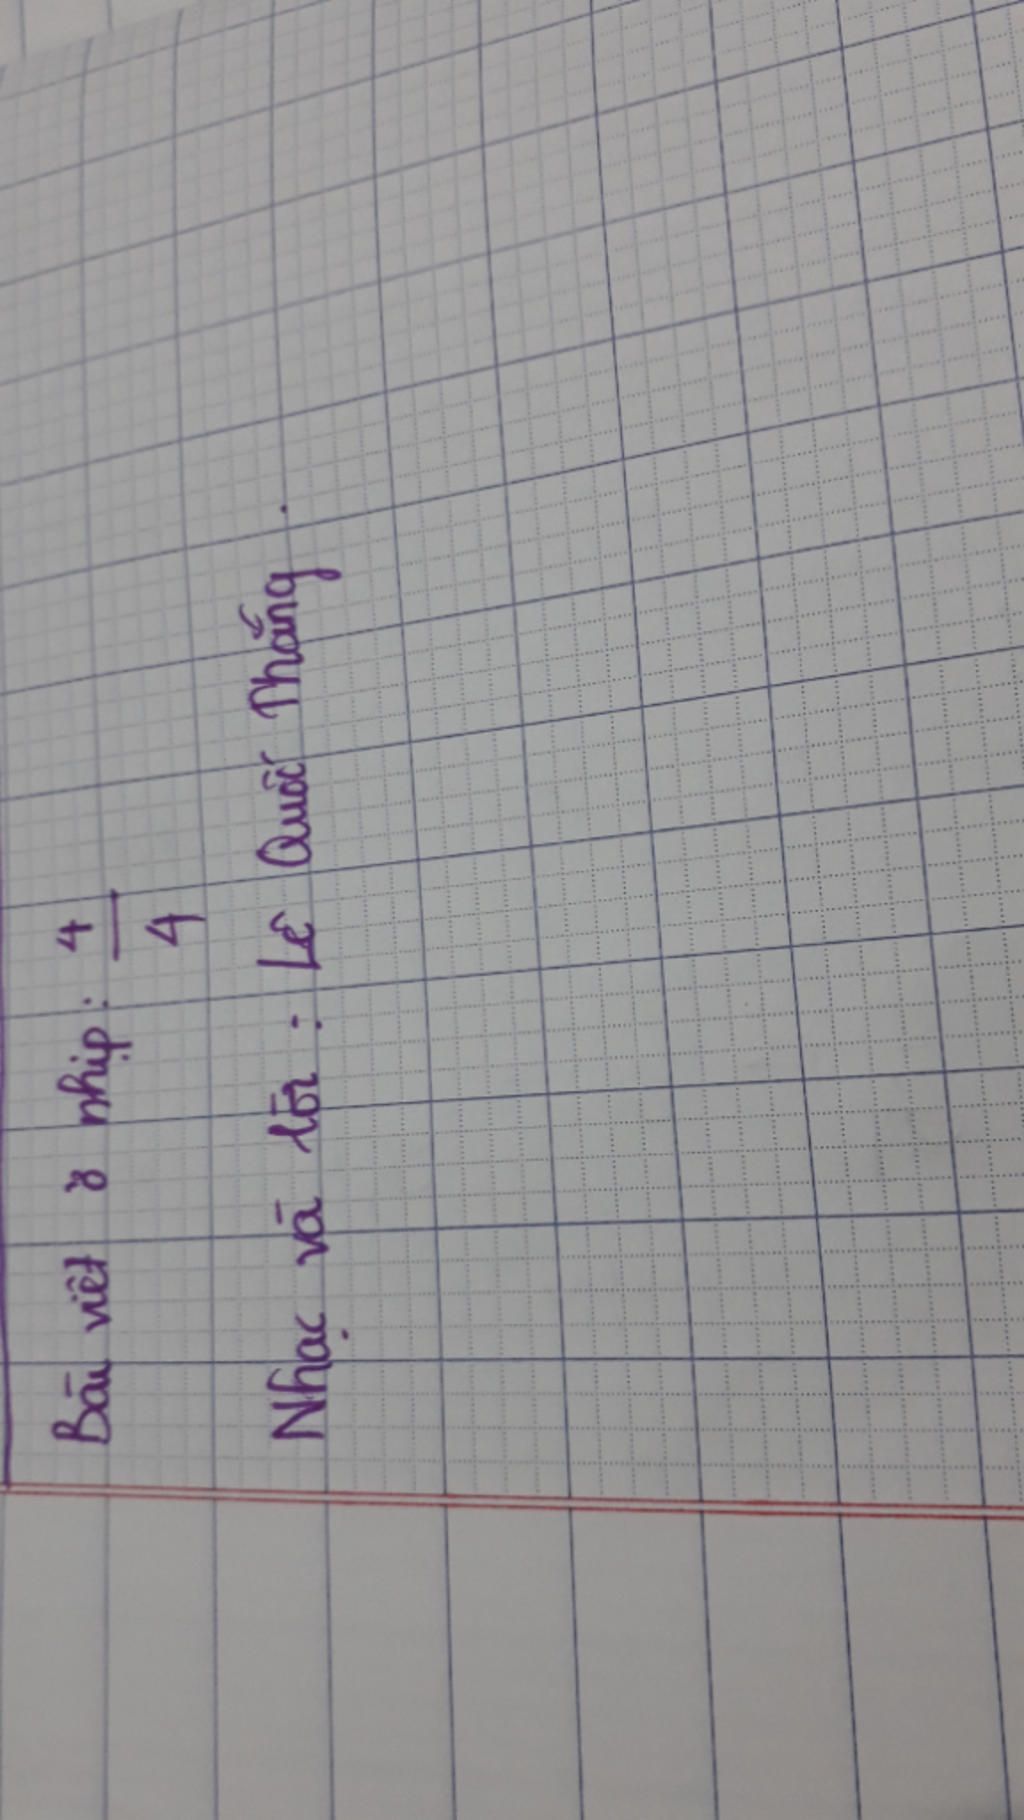 Bài viết ở nhịp: 4/4
Nhạc và lời: Lê Quốc Thắng.